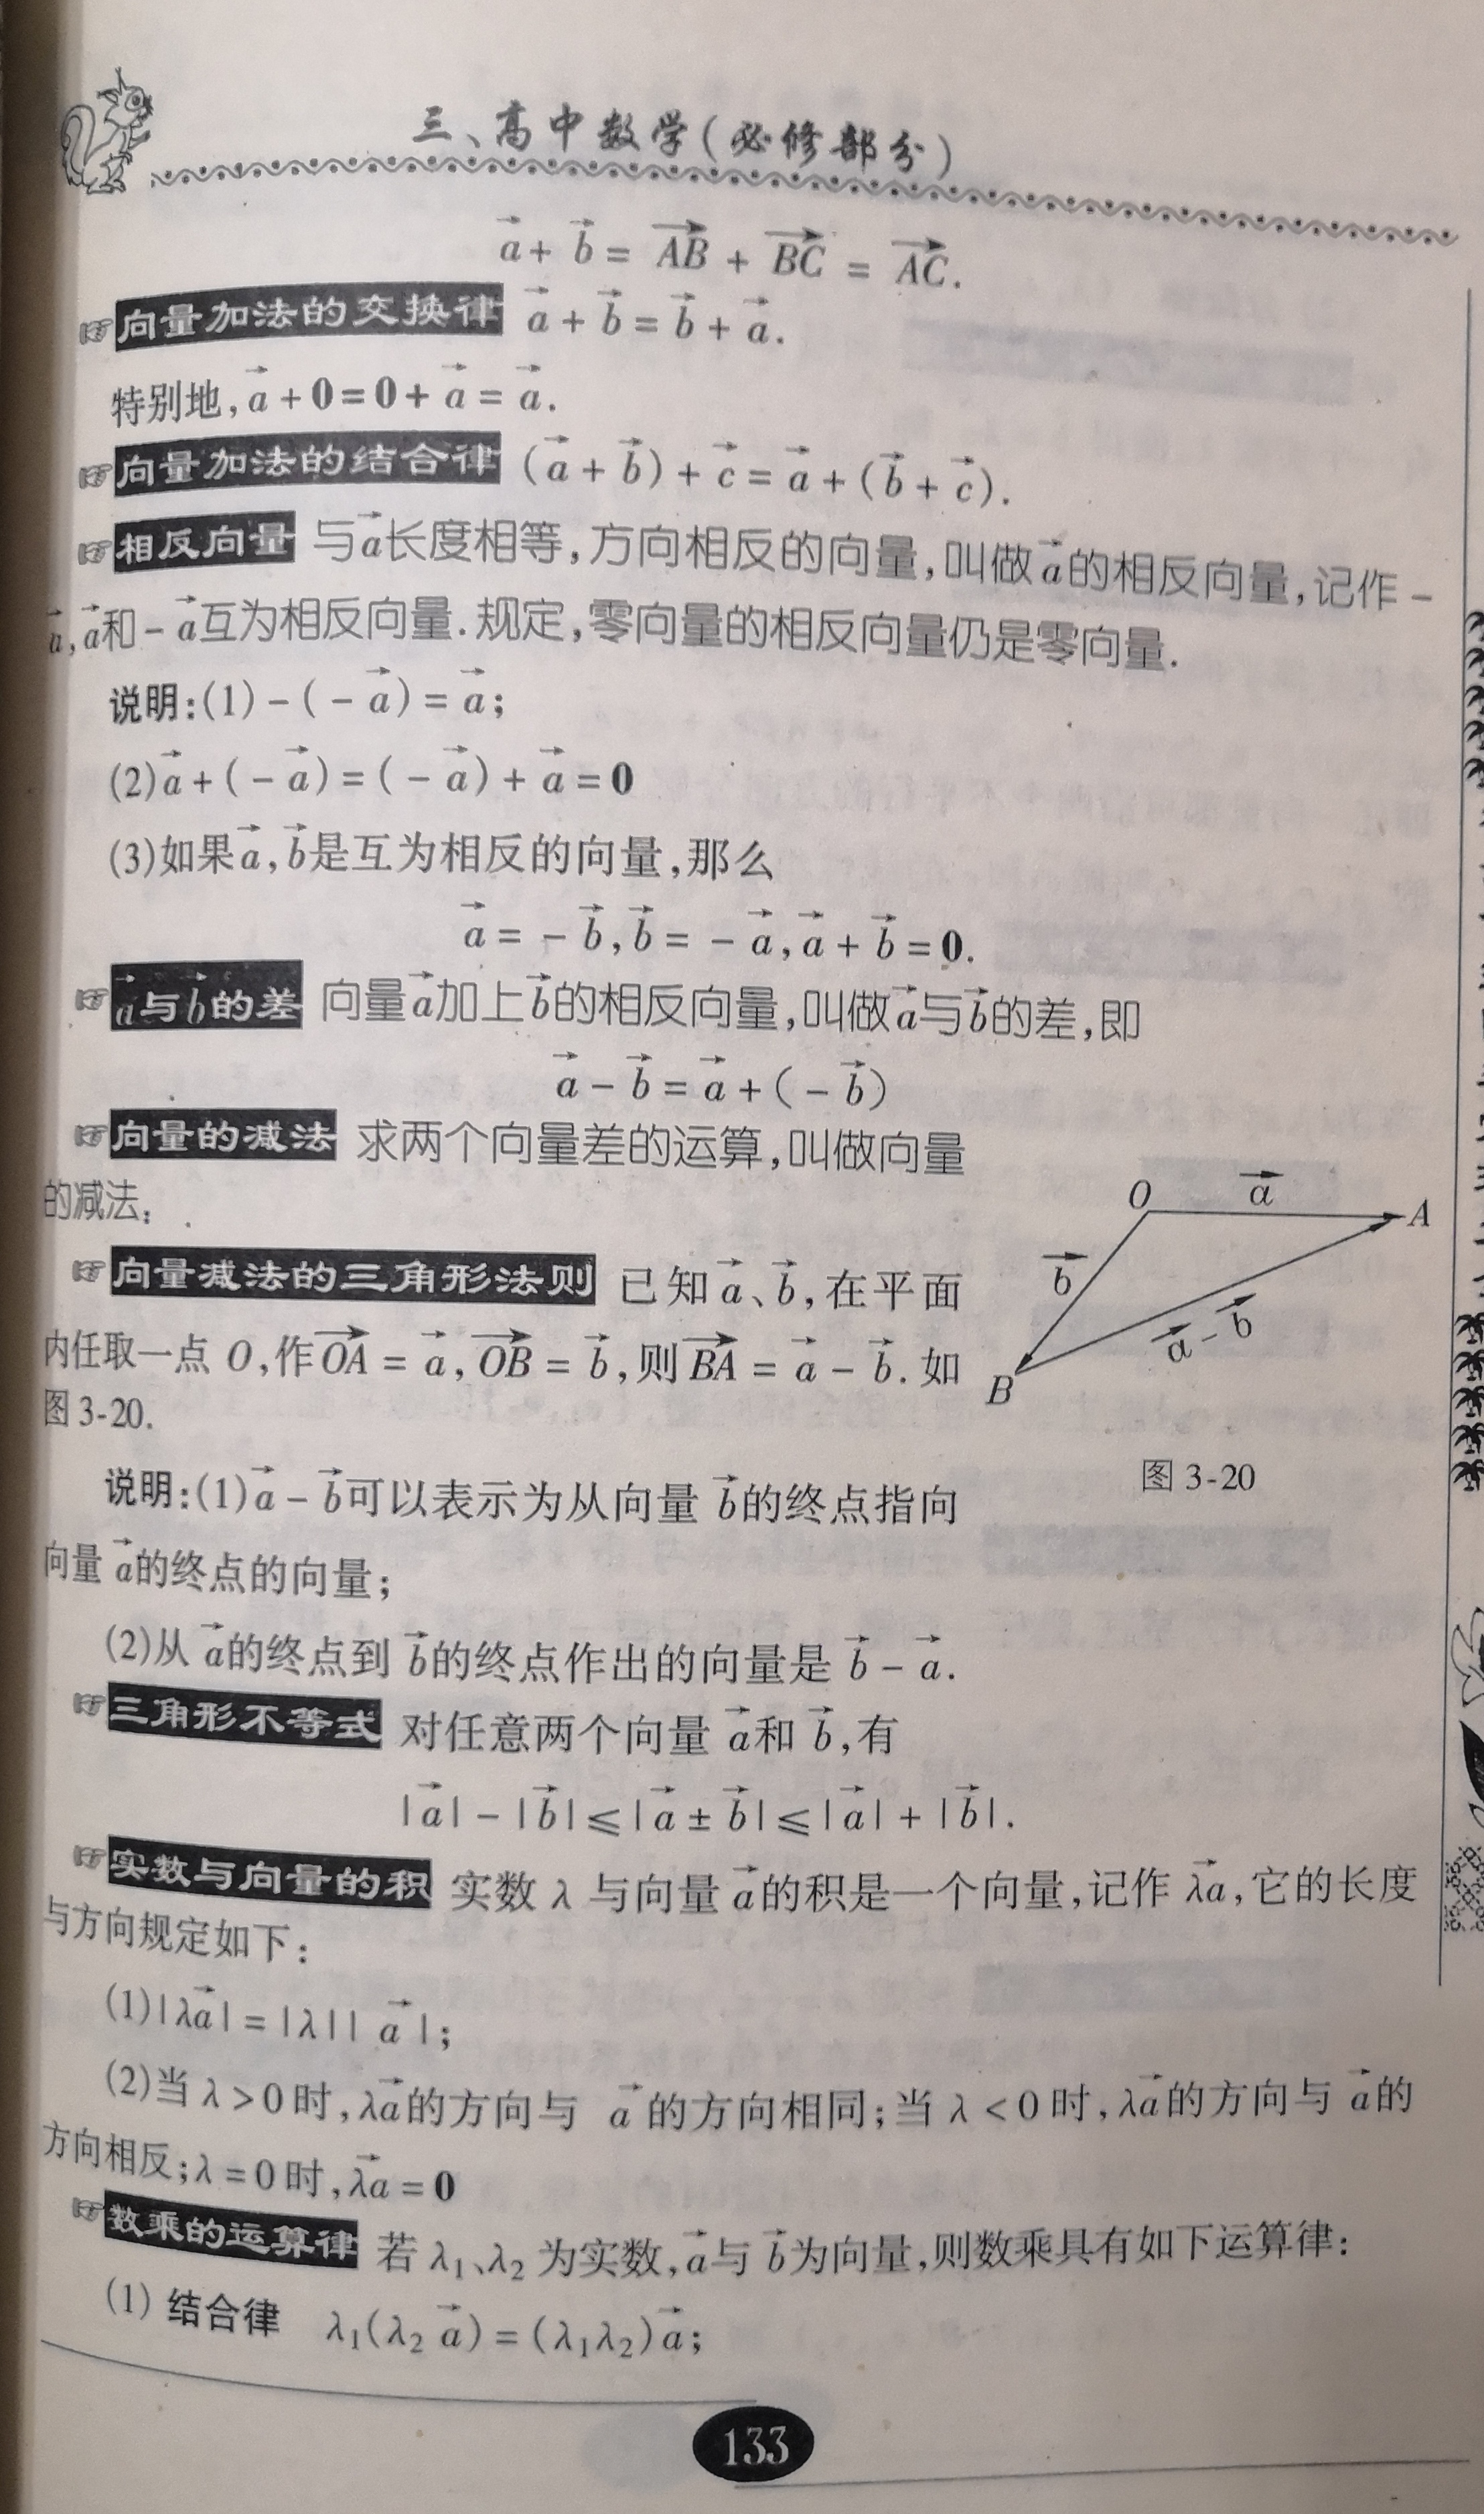 三、高中数学(必修部分)
$\vec{a}+\vec{b}=\overrightarrow{AB}+\overrightarrow{BC}=\overrightarrow{AC}$.
☞向量加法的交换律 $\vec{a}+\vec{b}=\vec{b}+\vec{a}$.
特别地,$\vec{a}+\mathbf{0}=\mathbf{0}+\vec{a}=\vec{a}$.
☞向量加法的结合律 $(\vec{a}+\vec{b})+\vec{c}=\vec{a}+(\vec{b}+\vec{c})$.
☞相反向量 与$\vec{a}$长度相等,方向相反的向量,叫做$\vec{a}$的相反向量,记作 $-$
$\vec{a}$,$\vec{a}$和$-\vec{a}$互为相反向量.规定,零向量的相反向量仍是零向量.
说明:(1)$-(-\vec{a})=\vec{a}$;
(2)$\vec{a}+(-\vec{a})=(-\vec{a})+\vec{a}=\mathbf{0}$
(3)如果$\vec{a}$,$\vec{b}$是互为相反的向量,那么
$\vec{a}=-\vec{b}$,$\vec{b}=-\vec{a}$,$\vec{a}+\vec{b}=\mathbf{0}$.
☞$\vec{a}$与$\vec{b}$的差 向量$\vec{a}$加上$\vec{b}$的相反向量,叫做$\vec{a}$与$\vec{b}$的差,即
$\vec{a}-\vec{b}=\vec{a}+(-\vec{b})$
☞向量的减法 求两个向量差的运算,叫做向量
的减法;
☞向量减法的三角形法则 已知$\vec{a}$、$\vec{b}$,在平面
内任取一点 O,作$\overrightarrow{OA}=\vec{a}$,$\overrightarrow{OB}=\vec{b}$,则$\overrightarrow{BA}=\vec{a}-\vec{b}$.如
图 3-20.
O
$\vec{a}$
A
$\vec{b}$
$\vec{a}-\vec{b}$
B
图 3-20
说明:(1)$\vec{a}-\vec{b}$可以表示为从向量 $\vec{b}$的终点指向
向量 $\vec{a}$的终点的向量;
(2)从 $\vec{a}$的终点到 $\vec{b}$的终点作出的向量是 $\vec{b}-\vec{a}$.
☞三角形不等式 对任意两个向量 $\vec{a}$和 $\vec{b}$,有
$|\vec{a}|-|\vec{b}|\leqslant|\vec{a}\pm\vec{b}|\leqslant|\vec{a}|+|\vec{b}|$.
☞实数与向量的积 实数 λ 与向量 $\vec{a}$的积是一个向量,记作 $\lambda\vec{a}$,它的长度
与方向规定如下:
(1)$|\lambda\vec{a}|=|\lambda||\vec{a}|$;
(2)当 λ>0 时,$\lambda\vec{a}$的方向与 $\vec{a}$ 的方向相同;当 λ<0 时,$\lambda\vec{a}$的方向与 $\vec{a}$的
方向相反;λ=0 时,$\lambda\vec{a}=\mathbf{0}$
☞数乘的运算律 若 $\lambda_1$、$\lambda_2$ 为实数,$\vec{a}$与 $\vec{b}$为向量,则数乘具有如下运算律:
(1) 结合律 $\lambda_1(\lambda_2\vec{a})=(\lambda_1\lambda_2)\vec{a}$;
133